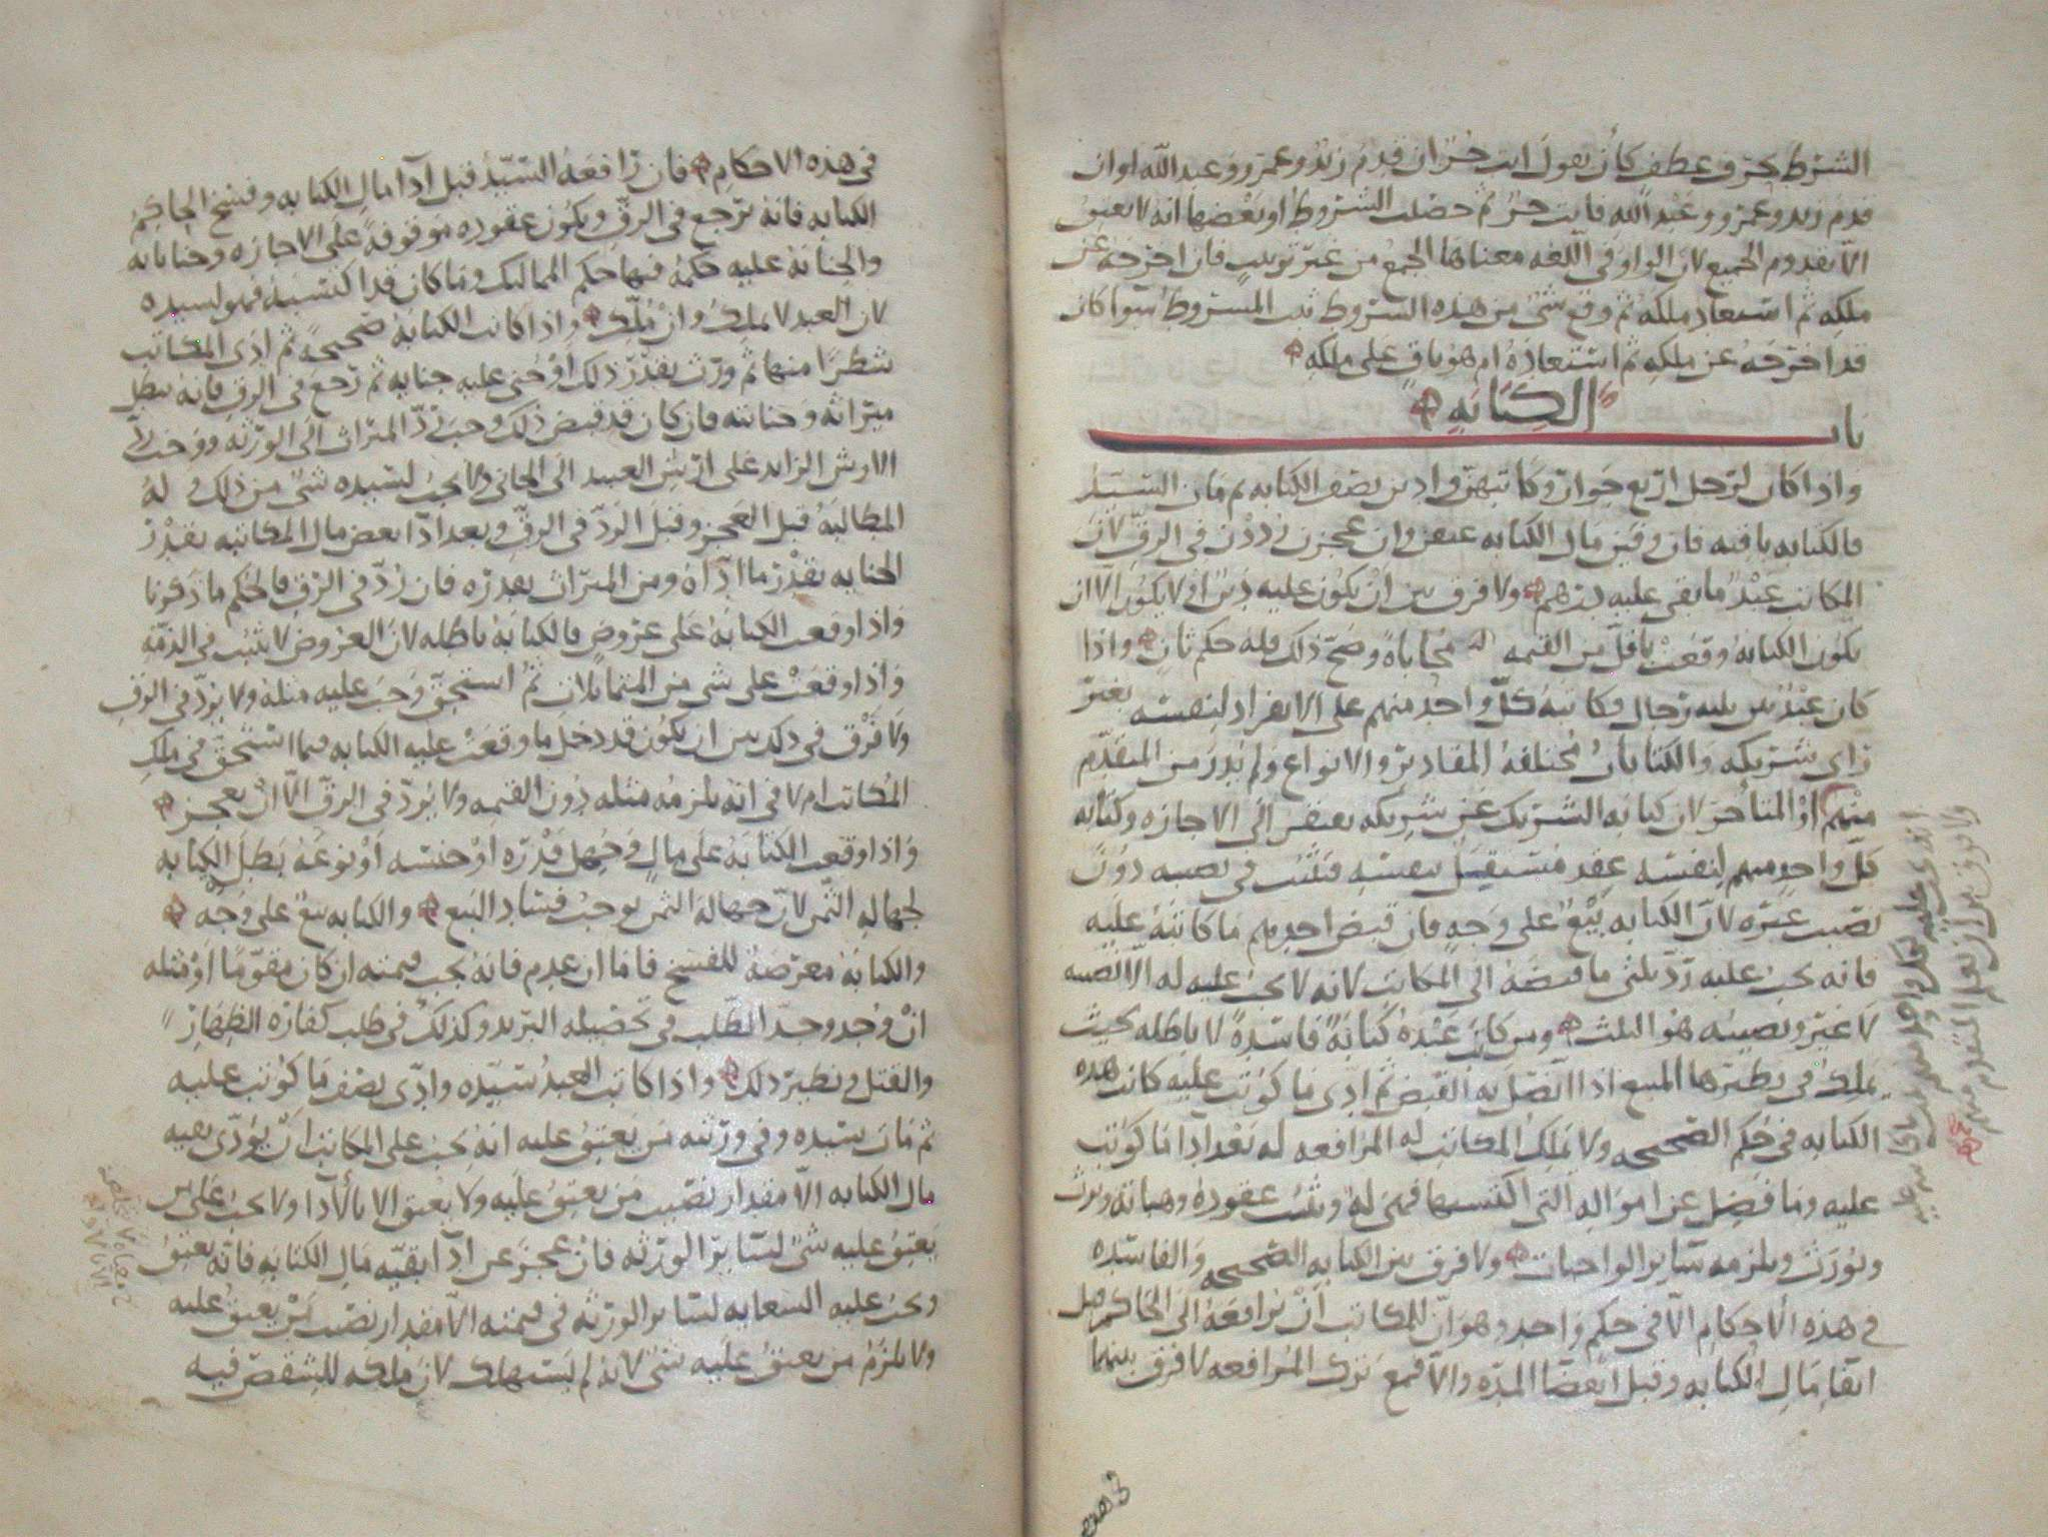 الشرط بحرف عطف كأن يقول انت حر ان قدم زيد وعمرو وعبد الله او ان
قدم زيد وعمرو وعبد الله فانت حر ثم حصلت الشروط او بعضها انه لا يعتق
الا بقدوم الجميع لان الواو في اللغه معناها الجمع من غير ترتيب فان اخرجه عن
ملكه ثم استعاد ملكه ثم وقع شي من هذه الشروط ثبت المشروط سوا كان
قد اخرجه عن ملكه ثم استعاده ام هو باق على ملكه
باب الكتابه
واذا كان لرجل اربع جوار وكاتبهن وادين نصف الكتابه ثم مات السيد
فالكتابه باقيه فان وفين مال الكتابه عتقن وان عجزن رددن في الرق لان
المكاتب عبد ما بقي عليه درهم ولا فرق بين ان يكون عليه دين او لا يكون الا ان
يكون الكتابه وقعت باقل من القيمه محاباه وصح ذلك فله حكم ثان واذا
كان عبد بين ثلثه رجال وكاتبه كل واحد منهم على الانفراد لنفسه بغير
راي شريكه والكتابات مختلفه المقادير والانواع ولم يدر من المتقدم
منهم او المتاخر لان كتابه الشريك عن شريكه يفتقر الى الاجازه وكتابه
كل واحد منهم لنفسه عقد مستقيل بنفسه فتثبت في نصيبه دون
نصيب غيره لان الكتابه بيع على وجه فان قبض احدهم ما كاتبه عليه
فانه يجب عليه رد ثلثي ما قبضه الى المكاتب لانه لا يجب عليه له الا نصيبه
لا غير ونصيبه هو الثلث ومن كاتب عبده كتابة فاسدة لا باطله بحيث
يملك في نظيرها المبيع اذا اتصل به القبض ثم ادى ما كوتب عليه كانت هذه
الكتابه في حكم الصحيحه ولا يملك المكاتب له المرافعه له بعد ادا ما كوتب
عليه وما فضل عن امواله التي اكتسبها فهي له وثبت عقوده وهباته ويرث
ويورث ويلزمه سائر الواجبات ولا فرق بين الكتابه الصحيحه والفاسده
في هذه الاحكام الا في حكم واحد وهو ان للمكاتب ان يرافعه الى الحاكم قبل
ايفا مال الكتابه وقبل انقضا المده والا فمع ترك المرافعه لا فرق بينهما
في هذه الاحكام فان رافعه السيد قبل ادا مال الكتابه وفسخ الحاكم
الكتابه فانه يرجع في الرق ويكون عقوده موقوفة على الاجازه وجناياته
والجنايه عليه حكمه فيها حكم المماليك وما كان قد اكتسبه فهو لسيده
لان العبد لا يملك وان ملك واذا كانت الكتابه صحيحة ثم ادى المكاتب
شطرا منها ثم ورث بقدر ذلك او جني عليه جنايه ثم رجع في الرق فانه يبطل
ميراثه وجنايته فان كان قد قبض ذلك وجب رد الميراث الى الورثه ووجب رد
الارش الزايد على ارش العبيد الى الجاني ولا يجب لسيده شي من ذلك وله
المطالبه قبل العجز وقبل الرد في الرق وبعد ادا بعض مال المكاتبه بقدر
الجنايه بقدر ما اداه ومن الميراث بقدره فان رد في الرق فالحكم ما ذكرنا
واذا وقعت الكتابه على عروض فالكتابه باطله لان العروض لا تثبت في الذمه
واذا وقعت على شي من المتماثلات ثم استحق وجب عليه مثله ولا يرد في الرق
ولا فرق في ذلك بين ان يكون قد دخل ما وقعت عليه الكتابه فيما استحق في ملك
المكاتب ام لا في انه يلزمه مثله دون القيمه ولا يرد في الرق الا ان يعجز
واذا وقعت الكتابه على مال وجهل قدره او جنسه او نوعه بطل الكتابه
لجهاله الثمن لان جهاله الثمن يوجب فساد البيع والكتابه بيع على وجه
والكتابه معرضة للفسخ فاما ان عدم فانه يجب قيمته ان كان مقوما او مثله
ان وجد وحد الطلب في تحصيله البريد وكذلك في طلب كفاره الظهار
والقتل ونظير ذلك واذا كاتب العبد سيده وادى نصف ما كوتب عليه
ثم مات سيده وفي ورثته من يعتق عليه انه يجب على المكاتب ان يؤدي بقيه
مال الكتابه الا مقدار نصيب من يعتق عليه ولا يعتق الا بالادا ولا يجب على من
يعتق عليه شي لسائر الورثه فان عجز عن ادا بقيه مال الكتابه فانه يعتق
ويجب عليه السعايه لسائر الورثه في قيمته الا مقدار نصيب من يعتق عليه
ولا يلزم من يعتق عليه شي لانه لم يستهلك لان ملكه للشقص فيه